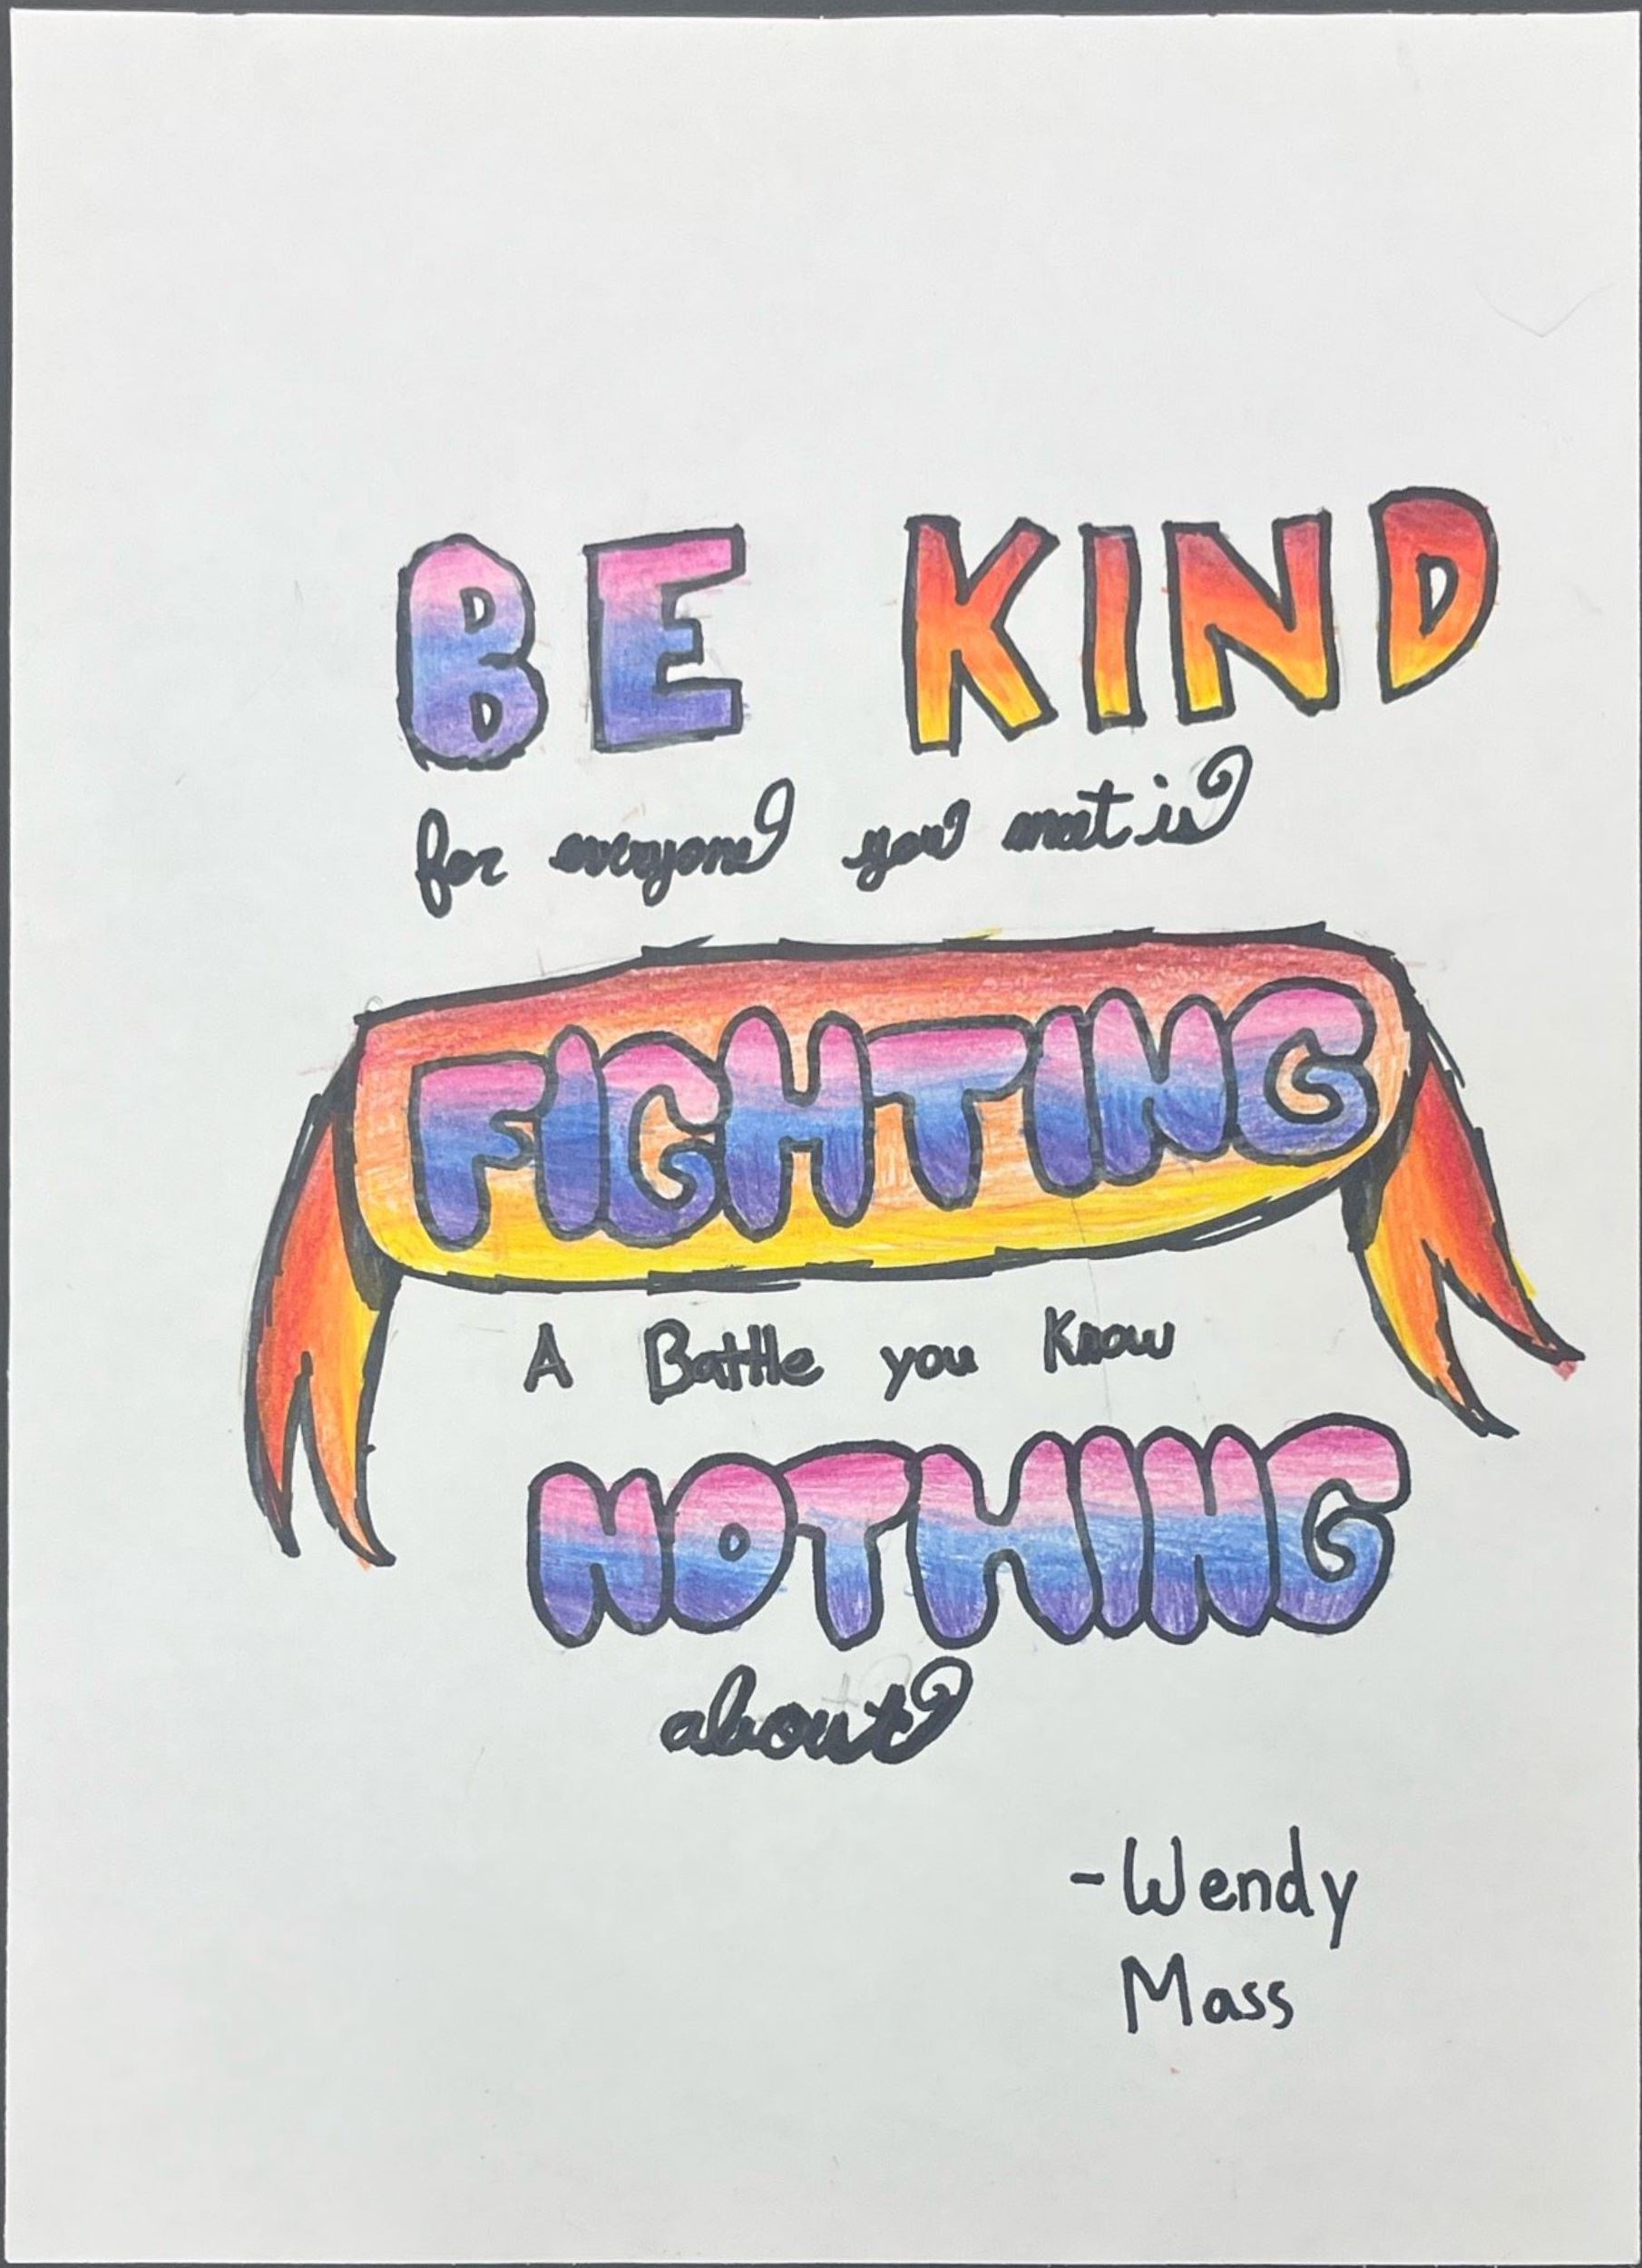 BE KIND
for everyone you meet is
FIGHTING
A Battle you Know
NOTHING
about
-Wendy
Mass